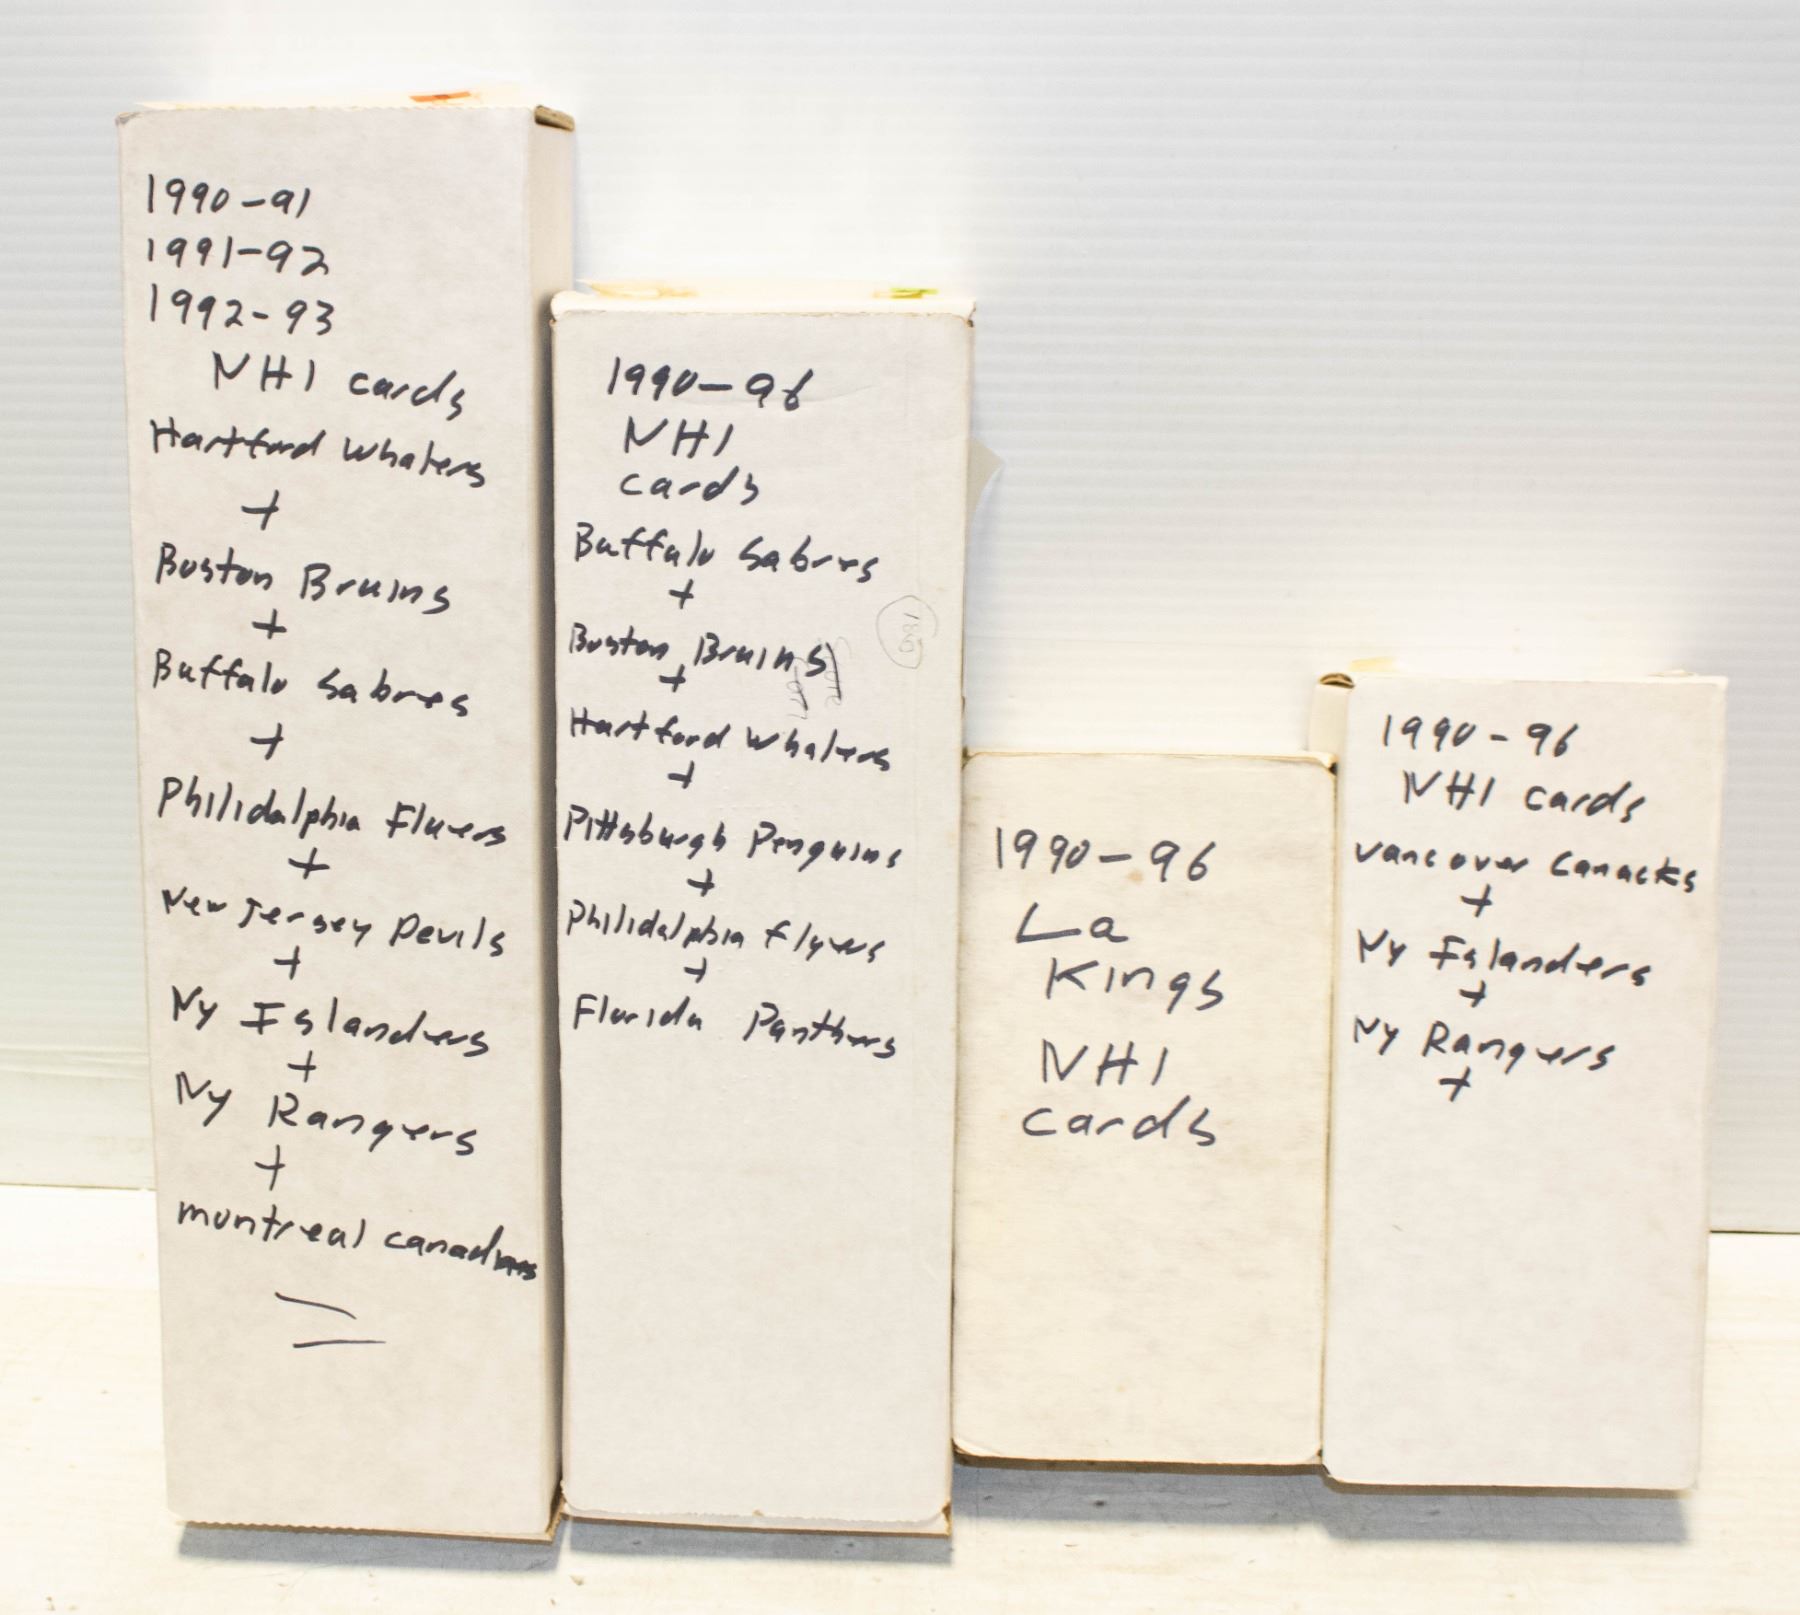 1990-91
1991-92
1992-93
NHl cards
Hartford Whalers
+
Boston Bruins
+
Buffalo Sabres
+
Philidalphia Flyers
+
New Jersey Devils
+
Ny Islanders
+
Ny Rangers
+
montreal canadians
1990-96
NHl
cards
Buffalo Sabres
+
Boston Bruins
+
Hartford Whalers
+
Pittsburgh Penguins
+
Philidalphia Flyers
+
Florida Panthers
1990-96
La
Kings
NHl
cards
1990-96
NHl cards
vancover Canacks
+
Ny Islanders
+
Ny Rangers
+